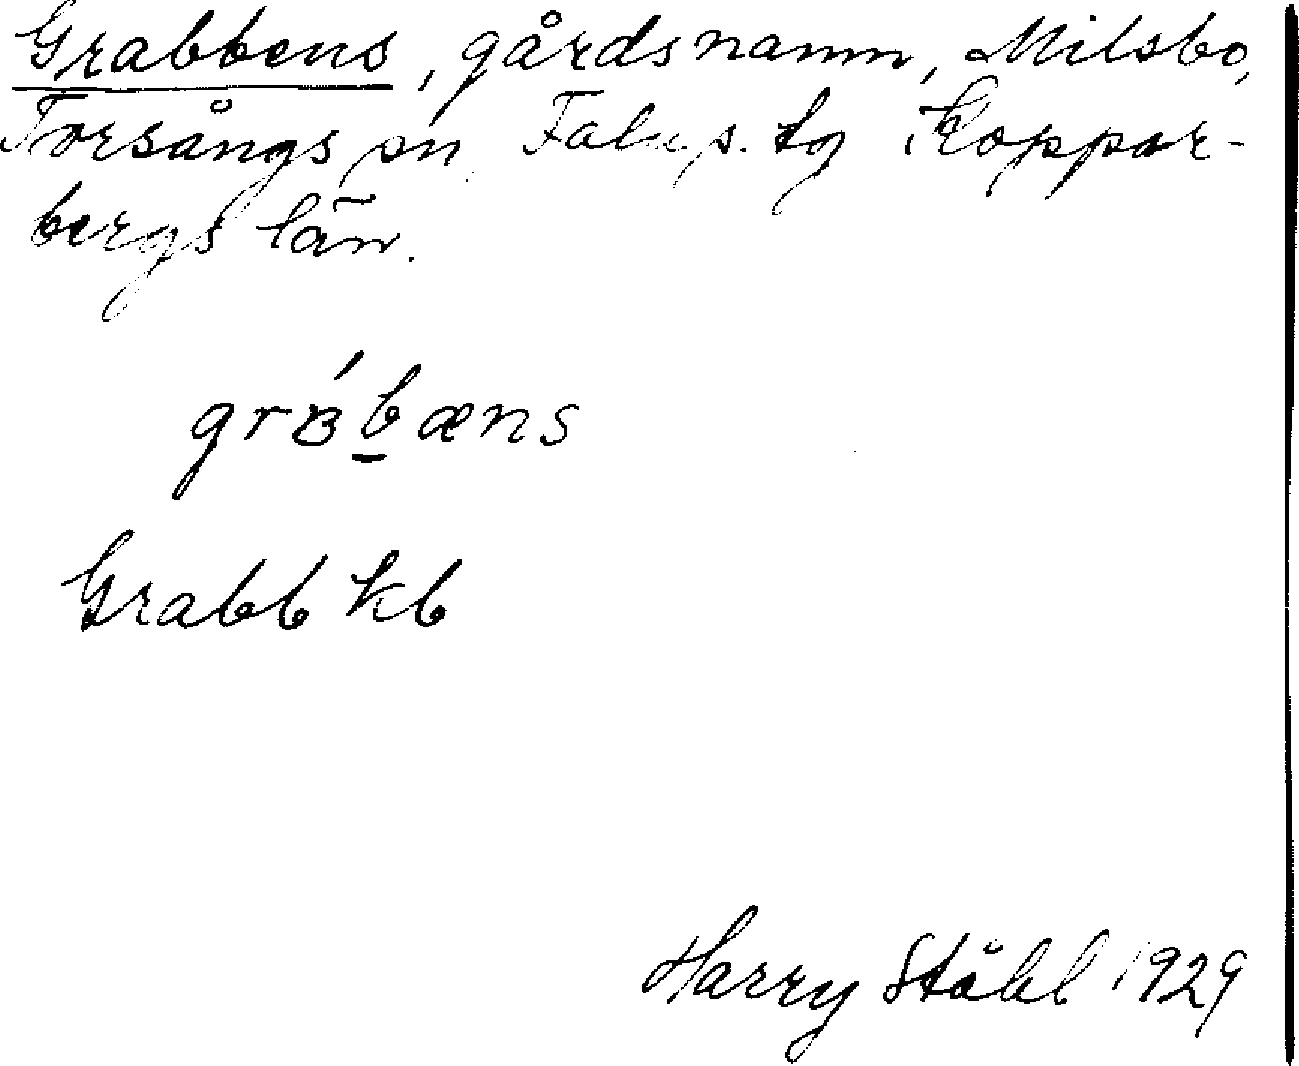 Grabbens, gårdsnamn, Milsbo,
Torsångs sn. Falu s. tg Koppar-
bergs län.
grá̱bæns
Grabb kb
Harry Ståhl 1929